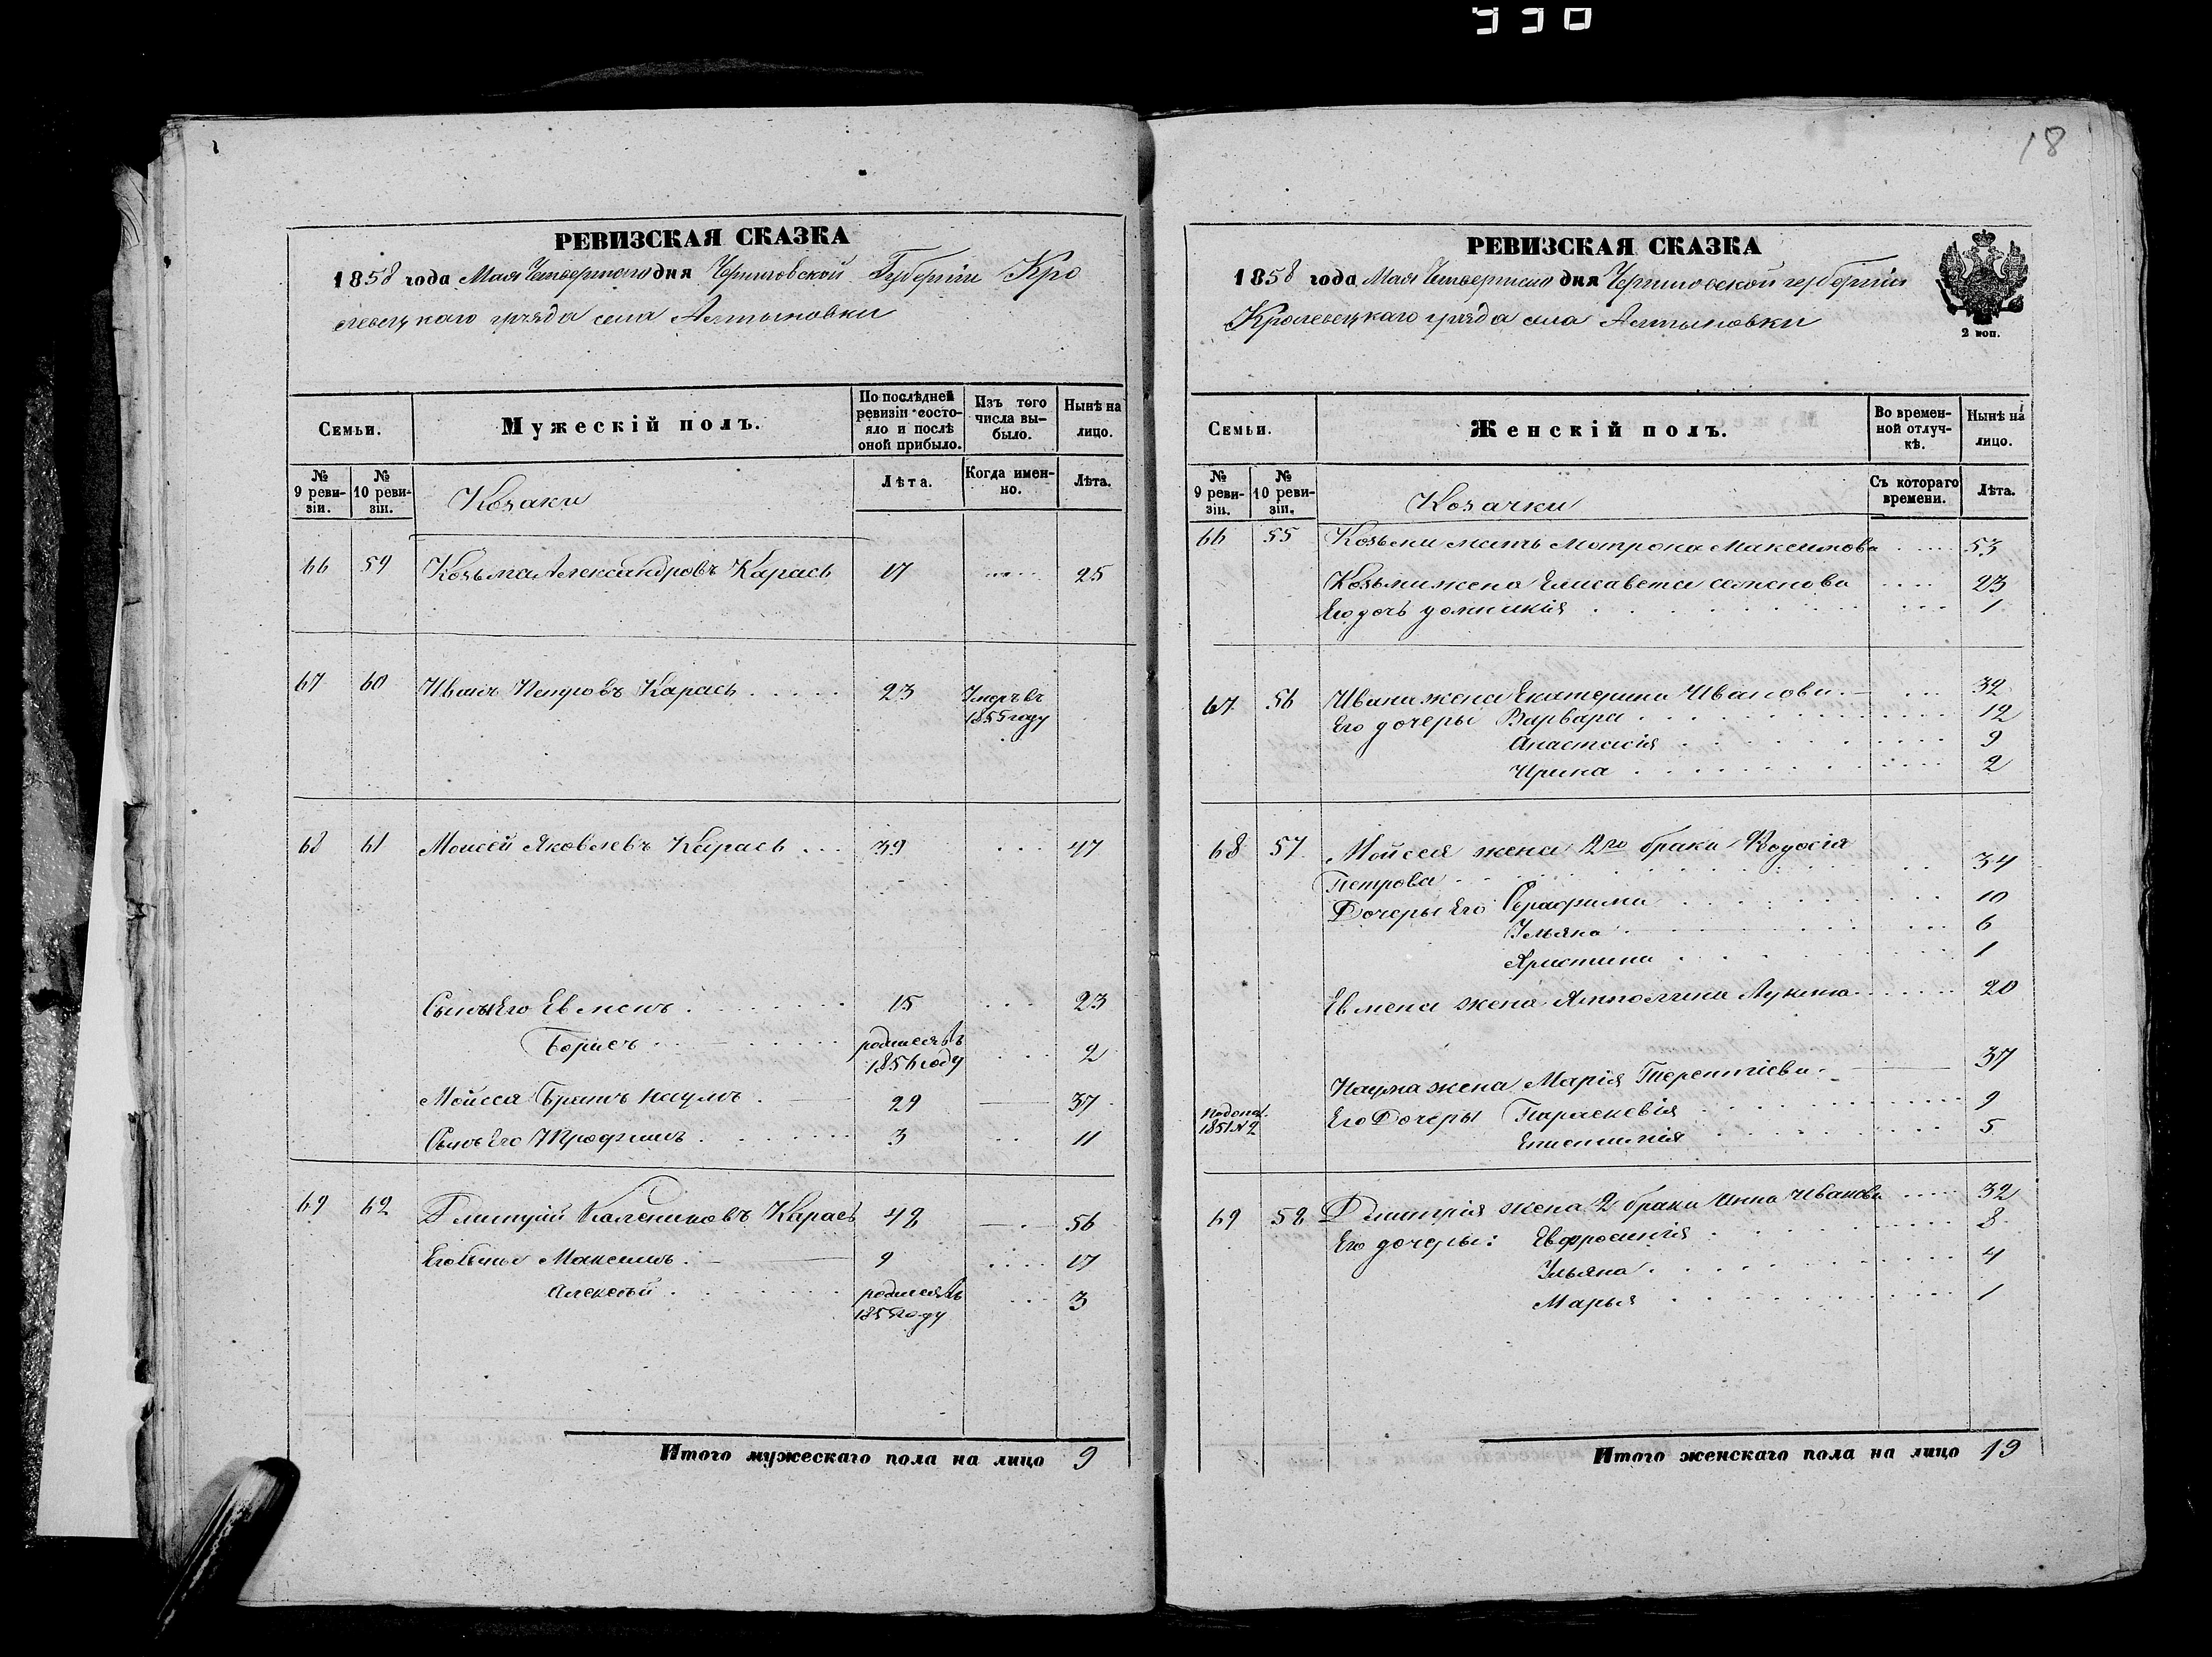 330
РЕВИЗСКАЯ СКАЗКА
1858 года Мая Четвертого дня Черниговской Губерніи Кро
левецкаго уѣзда села Алтыновки
Семьи.
Мужескій полъ.
По послѣдней ревизіи состояло и послѣ оной прибыло.
Изъ того числа выбыло.
Нынѣ на лицо.
№ 9 ревизіи.
№ 10 ревизіи.
Козаки
Лѣта.
Когда именно.
Лѣта.
66 59 Козьма Александровъ Карась 17 25
67 60 Иванъ Петровъ Карась 23 Умеръ въ
1855 году
68 61 Моисей Яковлевъ Карась 39 47
Сынъ Его Евменъ 15 23
Борисъ родился въ 2
1856 году
Мойсея Братъ Наумъ 29 37
Сынъ Его Трофимъ 3 11
69 62 Дмитрій Калениковъ Карась 48 56
Его Сыны Максимъ 9 17
Алексѣй родился въ 3
1855 году
Итого мужескаго пола на лицо 9
18
РЕВИЗСКАЯ СКАЗКА
2 коп.
1858 года Мая Четвертого дня Черниговской губерніи
Кролевецкаго уѣзда села Алтыновки
Семьи.
Женскій полъ.
Во временной отлучкѣ.
Нынѣ на лицо.
№ 9 ревизіи.
№ 10 ревизіи.
Козачки
Съ котораго времени.
Лѣта.
66 55 Козьми мать Мотрона Максимова 53
Козьми жена Елисавета Семенова 23
Его дочь Домникія 1
67 56 Ивана жена Екатерина Иванова 32
Его дочеры Варвара 12
Анастасія 9
Ирина 2
68 57 Мойсея жена 2го брака Феодосія
Петрова 34
Дочеры Его Серафима 10
Ульяна 6
Христина 1
Евмена жена Лукина 20
Наума жена Марія Терентіева 37
1851 № 2 Его Дочеры Параскевія 9
5
69 58 Дмитрія жена 2 брака Анна Иванова 32
Его дочеры: Евфросинія 8
Ульяна 4
Марья 1
Итого женскаго пола на лицо 19